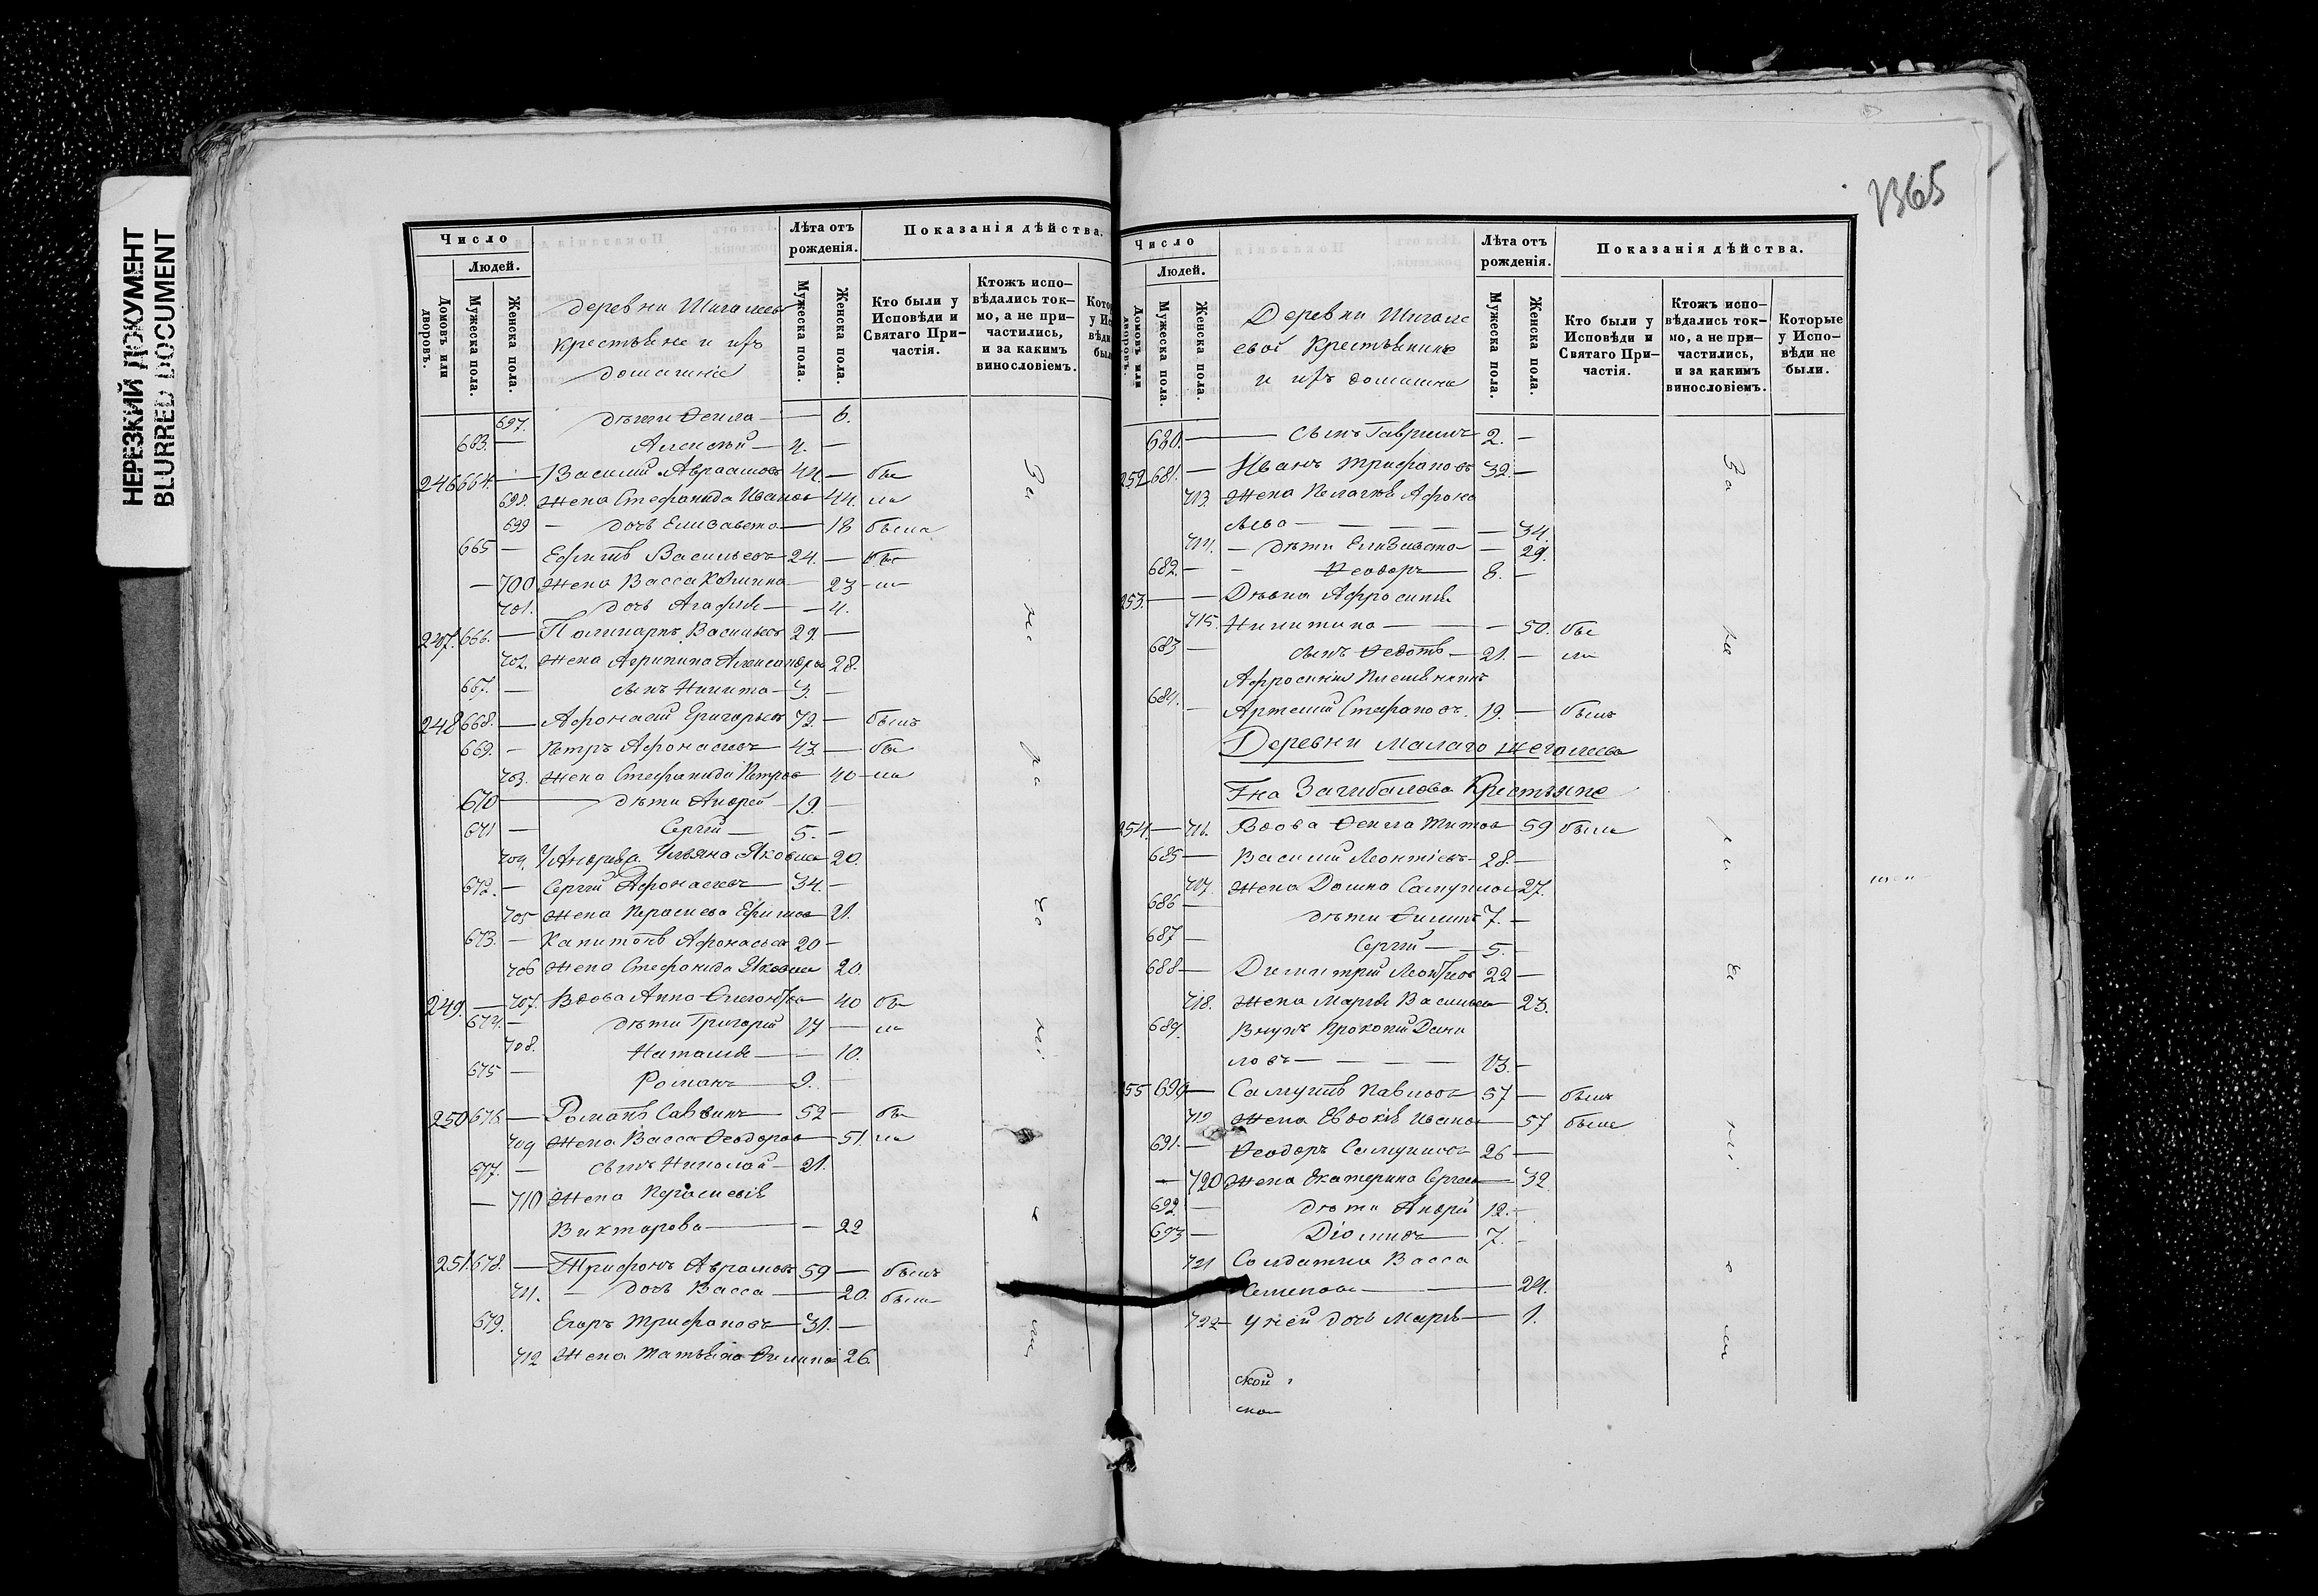 НЕРЕЗКИЙ ДОКУМЕНТ
BLURRED DOCUMENT
Число
Людей.
Домовъ или дворовъ.
Мужеска пола.
Женска пола.
деревни
крестьяне и ихъ
домашніе
Лѣта отъ рожденія.
Мужеска пола.
Женска пола.
Показанія дѣйства.
Кто были у Исповѣди и Святаго Причастія.
Ктожъ исповѣдались токмо, а не причастились, и за какимъ винословіемъ.
697. дѣти Ѳекла — 6.
683. — Алексѣй — 4. —
246 664. — Василій Авраамовъ 44. — бы
698. Жена Стефанида Иванов 44. ли
699 — дочь Елизавета — 18 была
665 — Ефимъ Васильевъ 24. — бы
— 700 Жена Васса 23 — ли
701. дочь Агафія — 4.
247. 666. — Поликарпъ Васильевъ 29. —
702. Жена Агрипина Александров 28.
667. — сынъ Никита — 3. —
248 668. — Афонасій Григорьевъ 72. — былъ
669. — Петръ Афонасьевъ 43. — бы
703. Жена Стефанида Петров 40 — ли
670 — дѣти Андрей — 19. —
671 — Сергій — 5. —
704. У Андрея Ульяна Яковлева 20.
672. — Сергій Афонасьевъ 34. —
705 Жена Ефимова 21.
673. — Капитонъ Афонасьев 20 —
706 Жена Стефанида Яковлева 20.
249. — 707. Вдова Анна 40 бы
674. — дѣти Григорій 17 — ли
708. Наталія — 10.
675 — Романъ — 9. —
250 676. — Романъ Саввинъ — 52 — бы
709 Жена Васса Ѳеодорова — 51. ли
677. — сынъ Николай — 21.
— 710 Жена
Викторова — — 22
251. 678. — Трифонъ Аврамовъ 59 — былъ
711. — дочь Васса — 20. была
679. Егоръ Трифоновъ — 31. —
712 Жена Татьяна 26.
1365
Число
Людей.
Домовъ или дворовъ.
Мужеска пола.
Женска пола.
Деревни
крестьянинъ
и ихъ домашніе
Лѣта отъ рожденія.
Мужеска пола.
Женска пола.
Показанія дѣйства.
Кто были у Исповѣди и Святаго Причастія.
Ктожъ исповѣдались токмо, а не причастились, и за какимъ винословіемъ.
Которые у Исповѣди не были.
680. — сынъ Гавріилъ 2. —
252 681. — Иванъ Трифоновъ 32. —
713. Жена Пелагія Афона
сьева — — 34.
714. — дѣти Елизавета — 29.
682. — — Ѳеодоръ 8. —
253. — — Дѣвка Афросинія
715. Никитина — — 50. бы
683 — сынъ Федотъ — 21. — ли
Афросиніи
684. — Артемій Стефановъ. 19. — былъ
Деревни Малаго Жеголева
Загибалова Крестьяне
254. — 716. Вдова Ѳекла Титова 59 была
685 — Василій Леонтіевъ 28. —
717. Жена Домна Самуилов 27.
686 — дѣти Филипъ 7. —
687 — Сергій — 5. —
688 — Димитрій 22 —
718. Жена Марія Васильева 23.
689. Внукъ Прокопій Дани
ловъ — — 13. —
55 690 — Самуилъ Павловъ 57 — былъ
719 Жена Евдокія Иванов 57 была
691. — Ѳеодоръ Самуилов 26 —
— 720 Жена Екатерина Сергеева 32
692. — дѣти Андрей 12. —
693 — Діомидъ 7. —
721 Солдатка Васса
Семенова — 24.
722 — у ней дочь Марія — 1.
ской